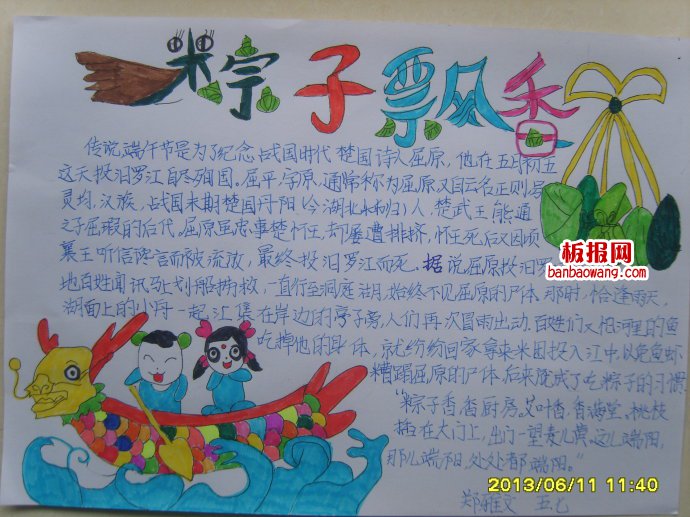 粽子飘香
传说端午节是为了纪念战国时代楚国诗人屈原，他在五月初五
这天投汨罗江自尽殉国。屈平，字原，通常称为屈原，又自云名正则，号
灵均，汉族，战国末期楚国丹阳（今湖北秭归）人，楚武王熊通
之子屈瑕的后代。屈原虽忠事楚怀王，却屡遭排挤，怀王死后又因顷
襄王听信谗言而被流放，最终投汨罗江而死。据说屈原投汨罗
地百姓闻讯马上划船捞救，一直行至洞庭湖，始终不见屈原的尸体。那时，恰逢雨天，
湖面上的小舟一起汇集在岸边的亭子旁，人们再次冒雨出动。百姓们又怕河里的鱼
吃掉他的身体，就纷纷回家拿来米团投入江中，以免鱼虾
糟蹋屈原的尸体，后来就成了吃粽子的习惯
“粽子香，香厨房。艾叶香，香满堂。桃枝
插在大门上，出门一望麦儿黄。这儿端阳，
那儿端阳，处处都端阳。”
郑雅文 五.乙
板报网
banbaowang.com
2013/06/11 11:40